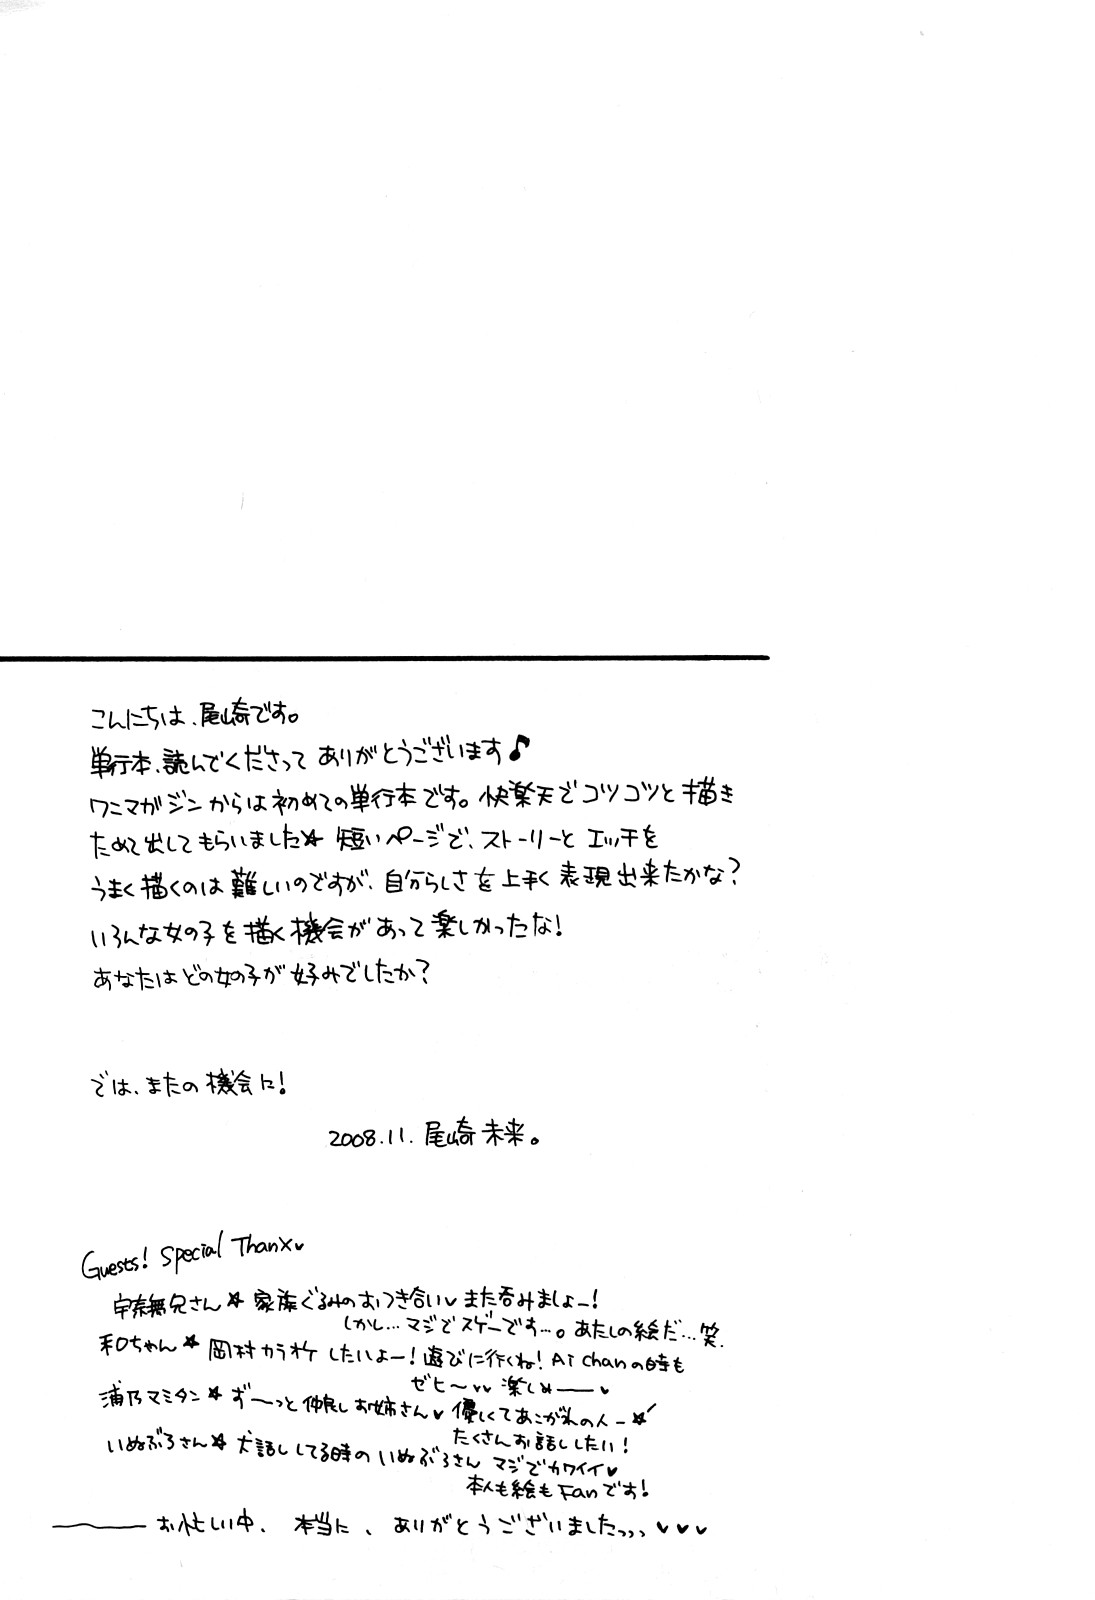 こんにちは、尾崎です。
単行本、読んでくださって ありがとうございます♪
ワニマガジンからは初めての単行本です。快楽天でコツコツと描き
ためて出してもらいました☆ 短いページで、ストーリーと エッチを
うまく描くのは難しいのですが、自分らしさを上手く表現出来たかな?
いろんな女の子を描く機会があって楽しかったな!
あなたはどの女の子が好みでしたか?
では、またの機会に!
2008.11. 尾崎未来。
Guests! Special Thanx♥
宇奈無兄さん☆ 家族ぐるみのおつき合い♥また呑みましょー!
しかし…マジでスゲーです…。あたしの絵だ…笑.
和ちゃん☆ 岡村カラオケしたいよー!遊びに行くね! Ai chanの時も
ゼヒ〜♥♥ 楽しめ――♥
浦乃マミタン☆ ず〜っと仲良しお姉さん♥ 優しくてあこがれの人ー☆
たくさんお話ししたい!
いぬぶろさん☆ 犬話ししてる時の いぬぶろさん マジでカワイイ♥
本人も絵もFanです!
――お忙しい中、本当に、ありがとうございましたっっっ♥♥♥